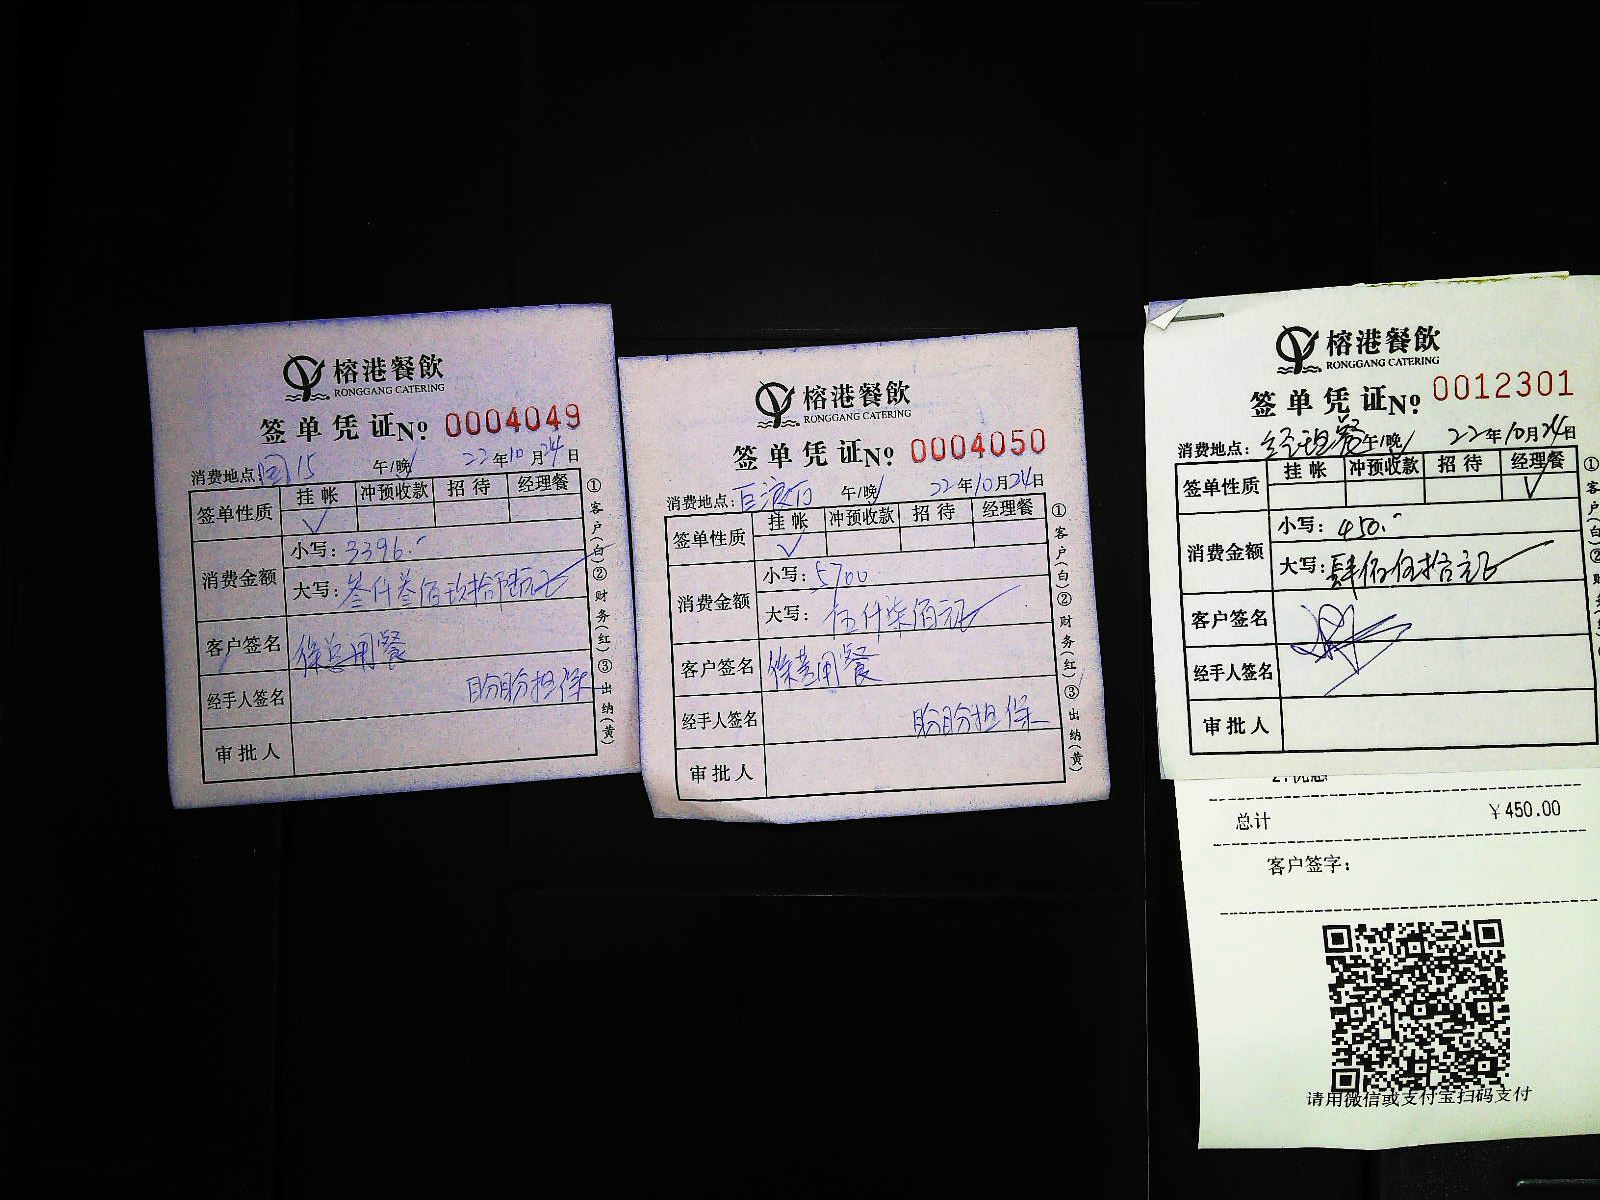 榕港餐飲
RONGGANG CATERING
签单凭证 No 0004049
消费地点: 闽15 午/晚 22年10月24日
签单性质 挂帐 冲预收款 招待 经理餐
✓
消费金额 小写: 3396.-
大写: 叁仟叁佰玖拾陆元正
客户签名 徐总用餐
经手人签名 盼盼担保
审批人
①客户(白)②财务(红)③出纳(黄)
榕港餐飲
RONGGANG CATERING
签单凭证 No 0004050
消费地点: 午/晚 22年10月24日
签单性质 挂帐 冲预收款 招待 经理餐
✓
消费金额 小写: 5700
大写: 伍仟柒佰元正
客户签名 徐总用餐
经手人签名 盼盼担保
审批人
①客户(白)②财务(红)③出纳(黄)
榕港餐飲
RONGGANG CATERING
签单凭证 No 0012301
消费地点: 经理餐 午/晚 22年10月24日
签单性质 挂帐 冲预收款 招待 经理餐
✓
消费金额 小写: 450.-
大写: 肆佰伍拾元正
客户签名
经手人签名
审批人
①客户(白)②
总计 ¥450.00
客户签字:
请用微信或支付宝扫码支付